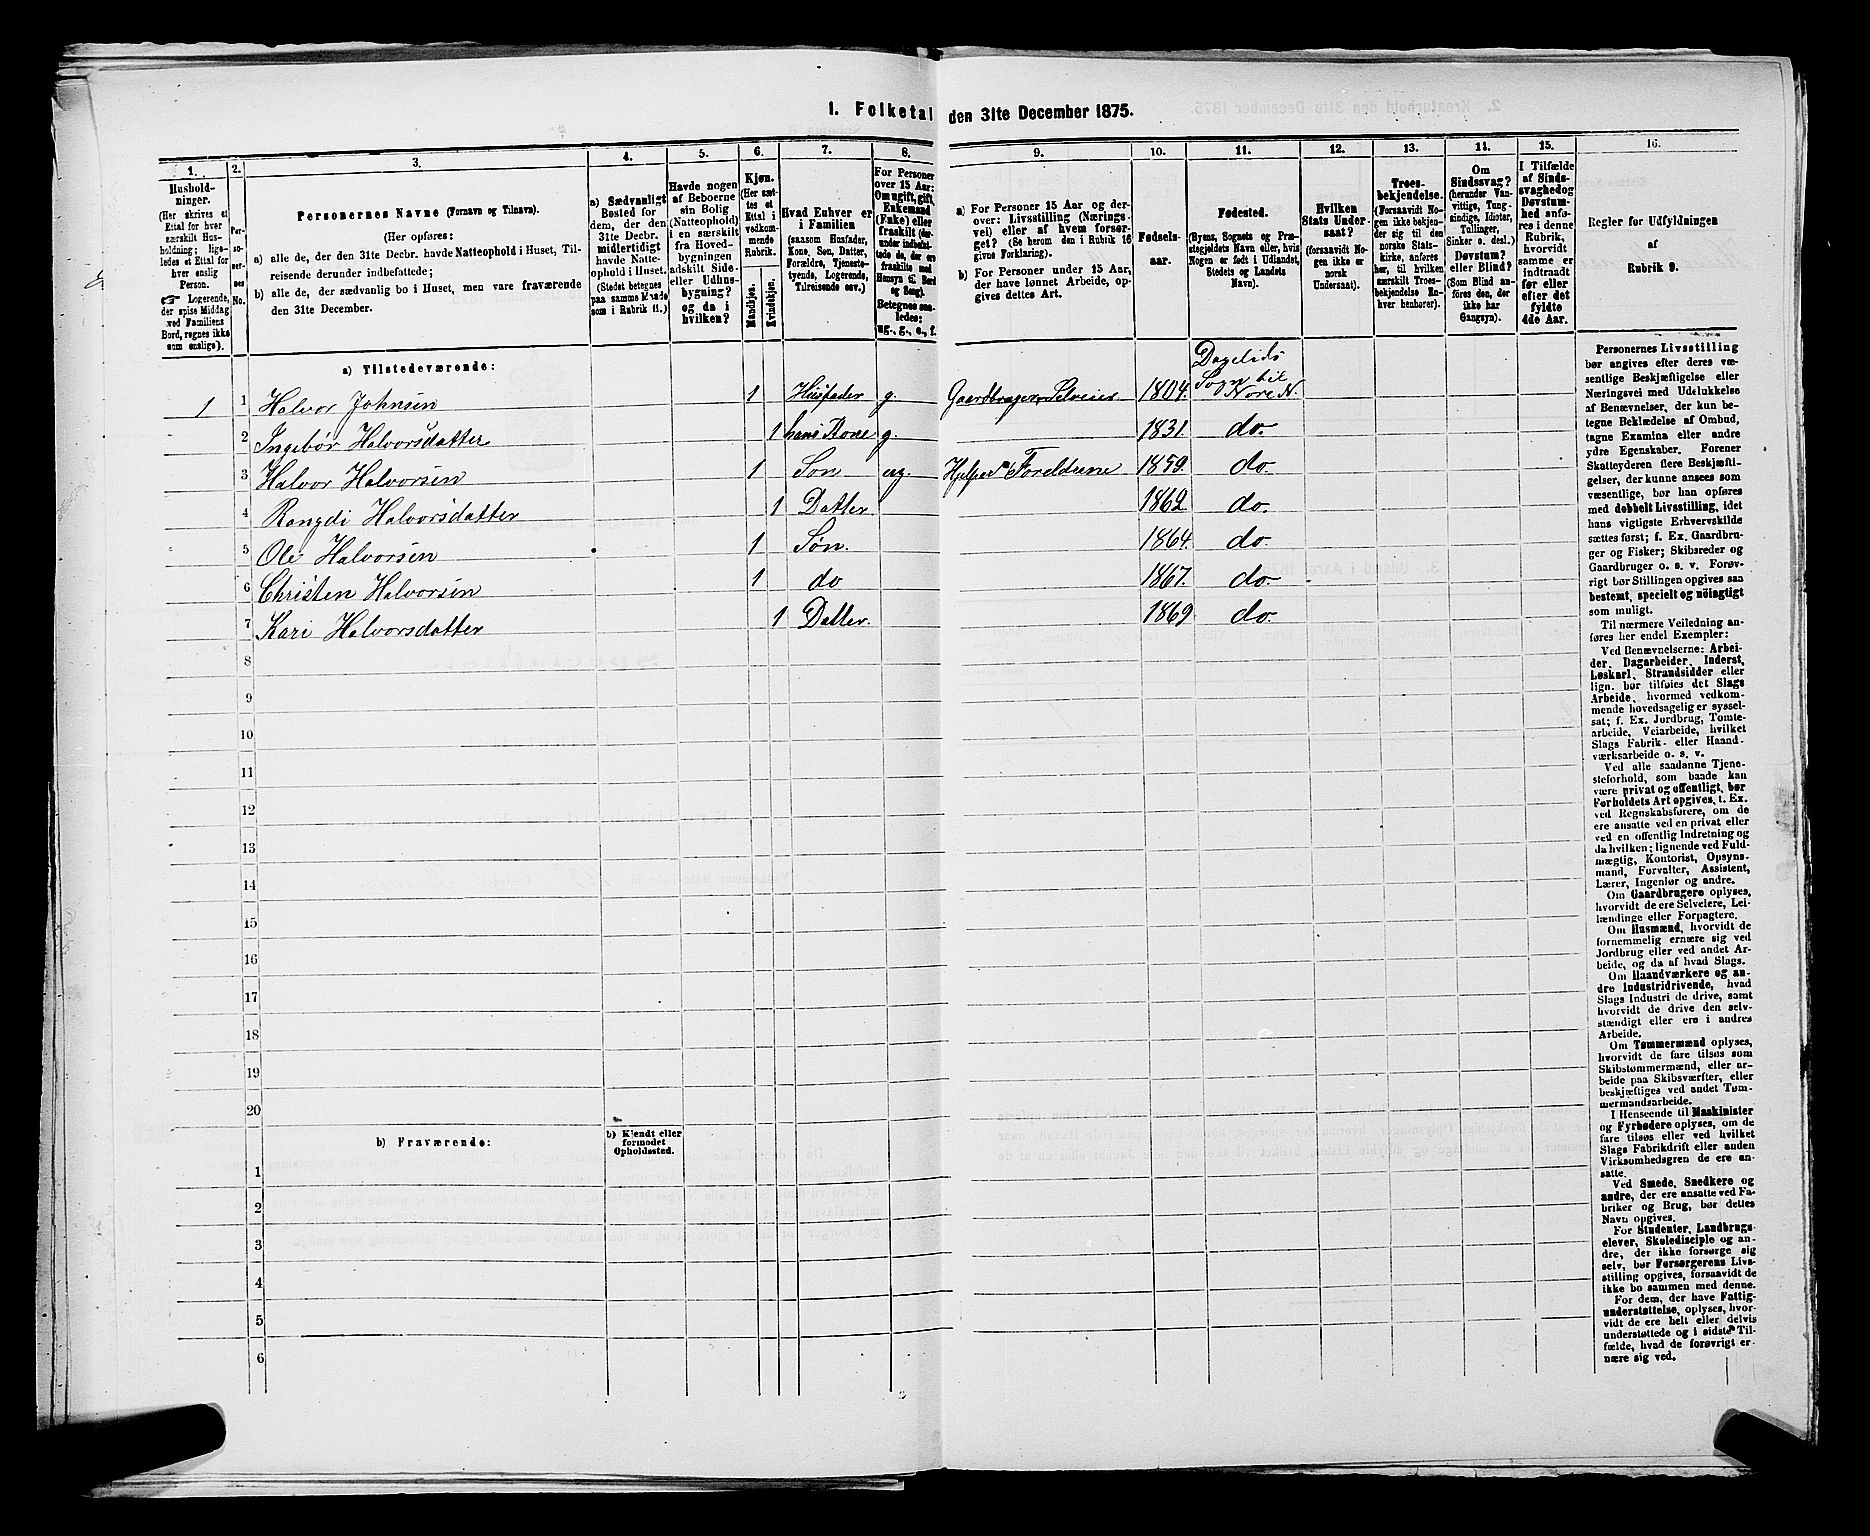 1. Folketal den 31te December 1875.
1.
2.
3.
4.
5.
6.
7.
8.
9.
10.
11.
12.
13.
14.
15.
16.
Hushold-
ninger.
(Her skrives et
Ettal for hver
særskilt Hus-
holdning; lige-
ledes et Ettal for
hver enslig
Person.
☞ Logerende,
der spise Middag
ved Familiens
Bord, regnes ikke
som enslige).
Per-
so-
ner-
nes
No.
Personernes Navne (Fornavn og Tilnavn).
(Her opføres:
a) alle de, der den 31te Decbr. havde Natteophold i Huset, Til-
reisende derunder indbefattede;
b) alle de, der sædvanlig bo i Huset, men vare fraværende
den 31te December.
a) Sædvanligt
Bosted for
dem, der den
31te Decbr.
midlertidigt
havde Natte-
ophold i Huset.
(Stedet betegnes
paa samme Maade
som i Rubrik 11.)
Havde nogen
af Beboerne
sin Bolig
(Natteophold)
i en særskilt
fra Hoved-
bygningen
adskilt Side-
eller Udhus-
bygning?
og da i
hvilken?
Kjøn.
(Her sæt-
tes et
Ettal i
vedkom-
mende
Rubrik.
Mandkjøn.
Kvindekjøn.
Hvad Enhver er
i Familien
(saasom Husfader,
Kone, Søn, Datter,
Forældre, Tjeneste-
tyende, Logerende,
Tilreisende osv.)
For Personer
over 15 Aar:
Om ugift, gift,
Enkemand
(Enke) eller
fraskilt (der-
under indbefat-
tede de, der ere
fraskilte med
Hensyn til Bord
og Seng).
Betegnes saa-
ledes:
ug., g., e., f.
a) For Personer 15 Aar og der-
over: Livsstilling (Nærings-
vei) eller af hvem forsør-
get? (Se herom den i Rubrik 16
givne Forklaring).
b) For Personer under 15 Aar,
der have lønnet Arbeide, op-
gives dettes Art.
Fødsels-
aar.
Fødested.
(Byens, Sognets og Præ-
stegjeldets Navn eller, hvis
Nogen er født i Udlandet,
Stedets og Landets
Navn).
Hvilken
Stats Under-
saat?
(forsaavidt No-
gen ikke er
norsk
Undersaat).
Troes-
bekjendelse.
(Forsaavidt No-
gen ikke bekjen-
der sig til den
norske Stats-
kirke, anføres
her, til hvilken
særskilt Troes-
bekjendelse En-
hver henhører).
Om
Sindssvag?
(herunder Van-
vittige, Tung-
sindige, Idioter,
Tullinger,
Sinker o. desl.)
Døvstum?
eller Blind?
(Som Blind an-
føres den, der
ikke har
Gangsyn).
I Tilfælde
af Sinds-
svaghed og
Døvstum-
hed anfø-
res i denne
Rubrik,
hvorvidt
samme er
indtraadt
før eller
efter det
fyldte
4de Aar.
Regler for Udfyldningen
af
Rubrik 9.
a) Tilstedeværende:
1 1 Halvor Johnsen 1 Husfader g. Gaardbruger, Selveier 1804. Dagelids Sogn til Nore N.
2 Ingebør Halvorsdatter 1 hans Kone g. 1831. do.
3 Halvor Halvorsen 1 Søn ug. Hjelper Foreldrene 1859. do.
4 Rangdi Halvorsdatter 1 Datter 1862. do.
5 Ole Halvorsen 1 Søn. 1864. do.
6 Christen Halvorsen 1 do 1867. do.
7 Kari Halvorsdatter 1 Datter. 1869. do.
8
9
10
11
12
13
14
15
16
17
18
19
20
b) Fraværende:
b) Kjendt eller
formodet
Opholdssted.
1
2
3
4
5
6
Personernes Livsstilling
bør angives efter deres væ-
sentlige Beskjæftigelse eller
Næringsvei med Udelukkelse
af Benævnelser, der kun be-
tegne Beklædelse af Ombud,
tagne Examina eller andre
ydre Egenskaber. Forener
Skatteyderen flere Beskjæfti-
gelser, der kunne ansees som
væsentlige, bør han opføres
med dobbelt Livsstilling, idet
hans vigtigste Erhvervskilde
sættes først; f. Ex. Gaardbru-
ger og Fisker; Skibsreder og
Gaardbruger o. s. v. Forøv-
rigt bør Stillingen opgives saa
bestemt, specielt og nøiagtigt
som muligt.
Til nærmere Veiledning an-
føres her endel Exempler:
Ved Benævnelserne: Arbei-
der, Dagarbeider, Inderst,
Løskarl, Strandsidder eller
lign. bør tilføies det Slags
Arbeide, hvormed vedkom-
mende hovedsagelig er syssel-
sat; f. Ex. Jordbrug, Tomte-
arbeide, Veiarbeide, hvilket
Slags Fabrik- eller Haand-
værksarbeide o. s. v.
Ved alle saadanne Tjene-
steforhold, som baade kan
være privat og offentligt, bør
Forholdets Art opgives, t. Ex.
ved Regnskabsførere, om de
ere ansatte ved en privat eller
ved en offentlig Indretning og
da hvilken; lignende ved Fuld-
mægtig, Kontorist, Opsyns-
mand, Forvalter, Assistent,
Lærer, Ingeniør og andre.
Om Gaardbrugere oplyses,
hvorvidt de ere Selveiere, Lei-
lændinge eller Forpagtere.
Om Husmænd, hvorvidt de
fornemmelig ernære sig ved
Jordbrug eller ved andet Ar-
beide, og da af hvad Slags.
Om Haandværkere og an-
dre Industridrivende, hvad
Slags Industri de drive, samt
hvorvidt de drive den selv-
stændigt eller ere i andres
Arbeide.
Om Tømmermænd oplyses,
hvorvidt de fare tilsøs som
Skibstømmermænd, eller ar-
beide paa Skibsværfter, eller
beskjæftiges ved andet Tøm-
mermandsarbeide.
I Henseende til Maskinister
og Fyrbødere oplyses, om de
fare tilsøs eller ved hvilket
Slags Fabrikdrift eller anden
Virksomhedsgren de ere an-
satte.
Ved Smede, Snedkere og
andre, der ere ansatte ved Fa-
briker og Brug, bør dettes
Navn opgives.
For Studenter, Landbrugs-
elever, Skoledisciple og an-
dre, der ikke forsørge sig
selv, bør Forsørgerens Livs-
stilling opgives, forsaavidt de
ikke bo sammen med denne.
For dem, der have Fattig-
understøttelse, oplyses, hvor-
vidt de ere helt eller delvis
understøttede og i sidste Til-
fælde, hvad de forøvrigt er-
nære sig ved.